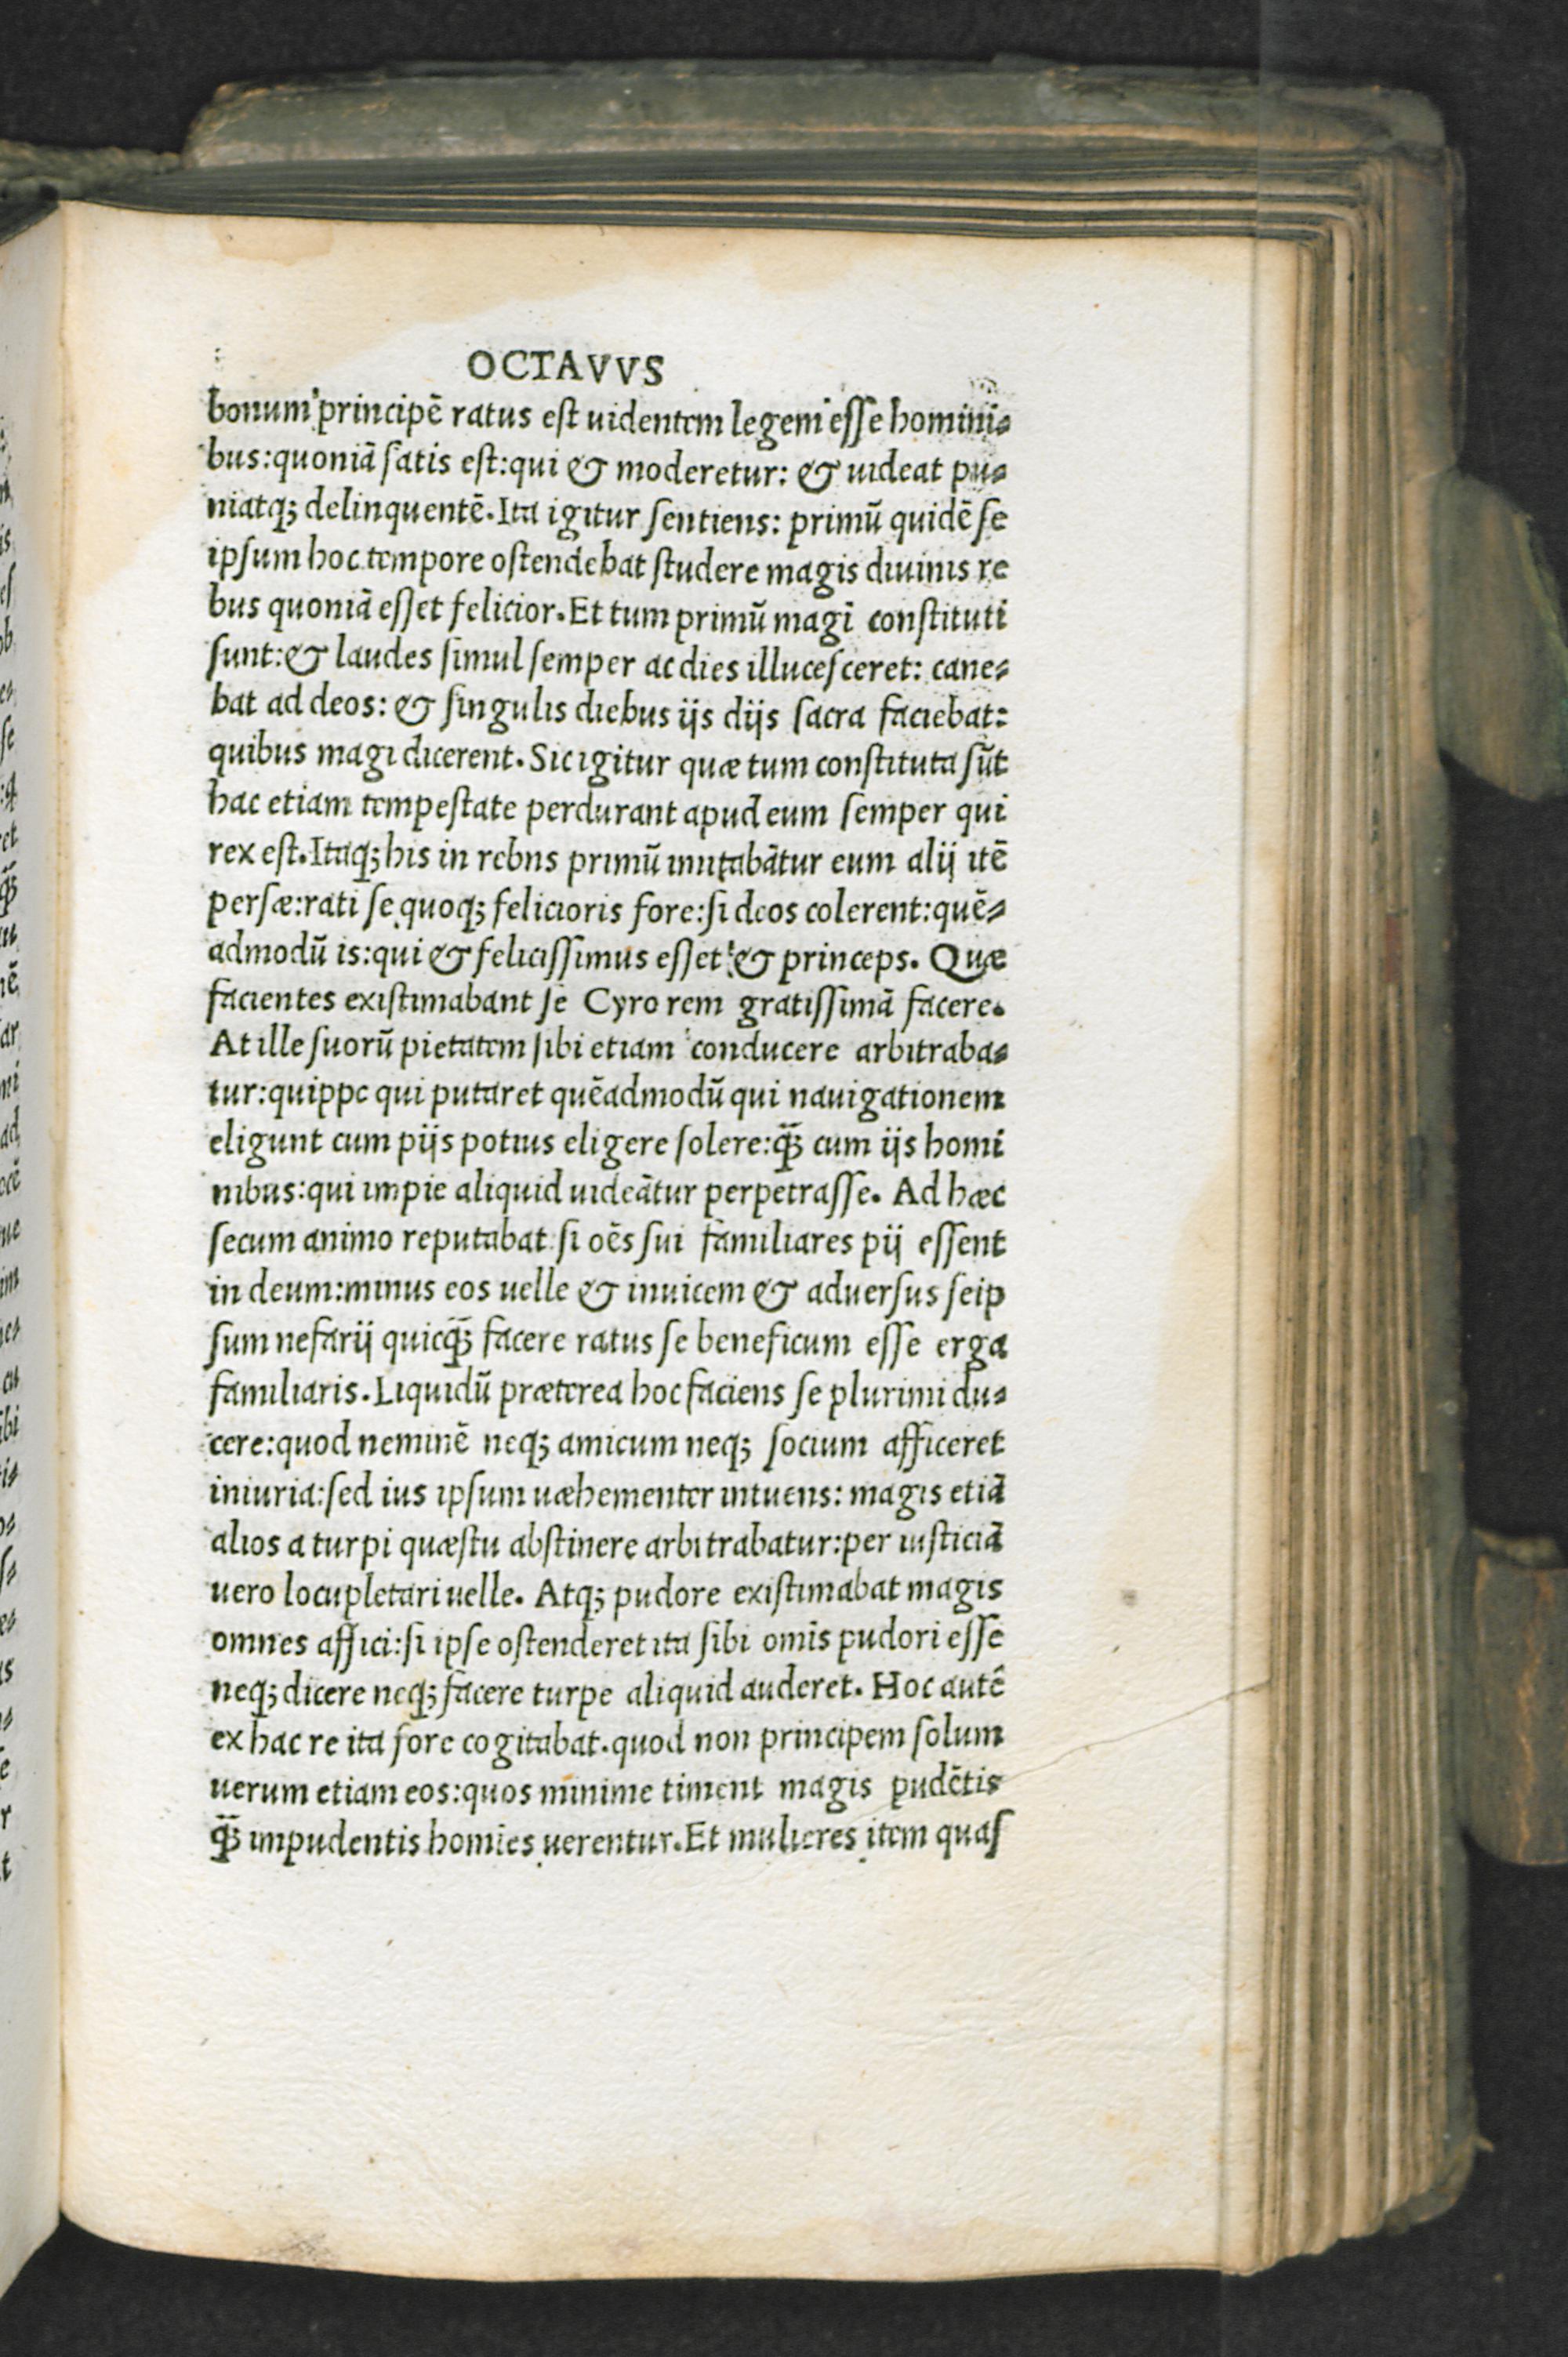 OCTAVVS
bonum principē ratus est uidentem legem esse homini⸗
bus:quoniā satis est:qui & moderetur: & uideat pu⸗
niatq; delinquentē. Ita igitur sentiens: primū quidē se
ipsum hoc tempore ostendebat studere magis diuinis re
bus quoniā esset felicior. Et tum primū magi constituti
sunt:& laudes simul semper ac dies illucesceret: cane⸗
bat ad deos: & singulis diebus ijs dijs sacra faciebat:
quibus magi dicerent. Sic igitur quæ tum constituta sūt
hac etiam tempestate perdurant apud eum semper qui
rex est. Itaq; his in rebns primū imitabātur eum alij itē
persæ:rati se quoq; felicioris fore:si deos colerent:quē⸗
admodū is:qui & felicissimus esset & princeps. Quæ
facientes existimabant se Cyro rem gratissimā facere.
At ille suorū pietatem sibi etiam conducere arbitraba⸗
tur:quippe qui putaret quēadmodū qui nauigationem
eligunt cum pijs potius eligere solere:q̄; cum ijs homi
nibus:qui impie aliquid uideātur perpetrasse. Ad hæc
secum animo reputabat si oēs sui familiares pij essent
in deum:minus eos uelle & inuicem & aduersus seip
sum nefarij quicq̄; facere ratus se beneficum esse erga
familiaris. Liquidū præterea hoc faciens se plurimi du⸗
cere:quod neminē neq; amicum neq; socium afficeret
iniuria:sed ius ipsum uæhementer intuens: magis etiā
alios a turpi quæstu abstinere arbitrabatur:per iusticiā
uero locupletari uelle. Atq; pudore existimabat magis
omnes affici:si ipse ostenderet ita sibi omīs pudori esse
neq; dicere neq; facere turpe aliquid auderet. Hoc autē
ex hac re ita fore cogitabat.quod non principem solum
uerum etiam eos:quos minime timent magis pudētis
q̄; impudentis homīes uerentur. Et mulieres item quas